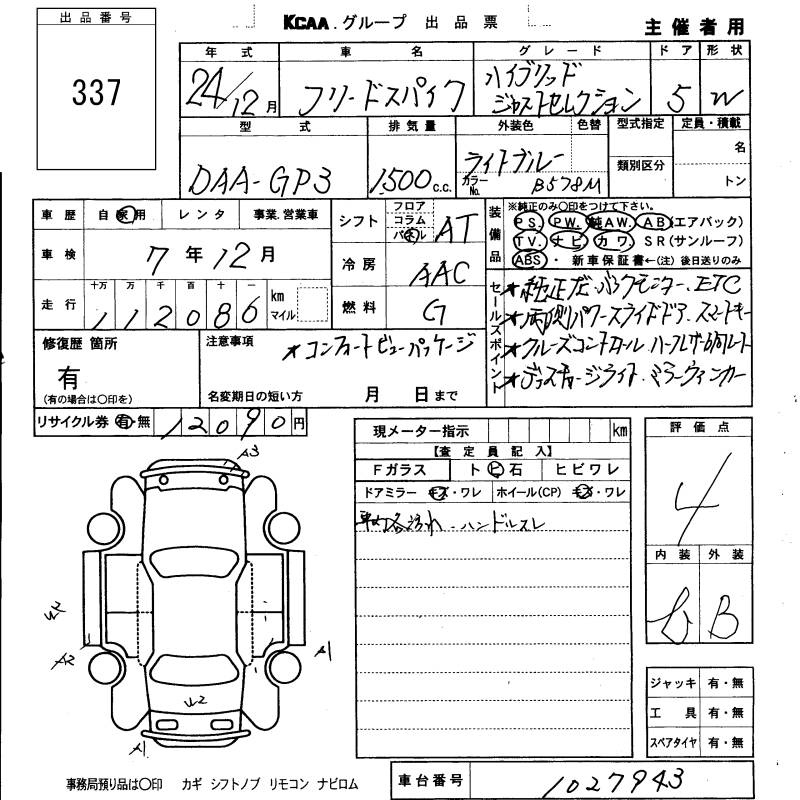 出品番号
337
KCAA.グループ 出品票
主催者用
年式 車名 グレード ドア 形状
24/12月 フリードスパイク ハイブリッド
ジャストセレクション 5 W
型式 排気量 外装色 色替 型式指定 定員・積載
DAA-GP3 1500c.c. ライトブルー
カラーNo. B578M 類別区分 名
トン
車歴 自家用 レンタ 事業.営業車
シフト フロア コラム パネル AT
装備品 ※純正のみ〇印をつけて下さい。
PS. PW. 純AW. AB(エアバック)
TV. ナビ カワ. SR(サンルーフ)
ABS・新車保証書←(注)後日送りのみ
車検 7年12月
冷房 AAC
走行 十万 万 千 百 十 一
112086 km マイル
燃料 G
セールスポイント
★純正ナビ.バックモニター.ETC
★両側パワースライドドア.スマートキー
★クルーズコントロール ハーフレザー調シート
★ディスチャージライト.ミラーウィンカー
修復歴 箇所
有
(有の場合は〇印を)
注意事項
★コンフォートビューパッケージ
名変期日の短い方 月 日まで
リサイクル券 有・無 12090円
現メーター指示 km
【査定員記入】
Fガラス トビ石 ヒビワレ
ドアミラー キズ・ワレ ホイール(CP) キズ・ワレ
車内各汚れ・ハンドルスレ
評価点
4
内装 外装
b B
A3
U2
A2
A1
U2
A1
ジャッキ 有・無
工具 有・無
スペアタイヤ 有・無
事務局預り品は〇印 カギ シフトノブ リモコン ナビロム
車台番号 1027943